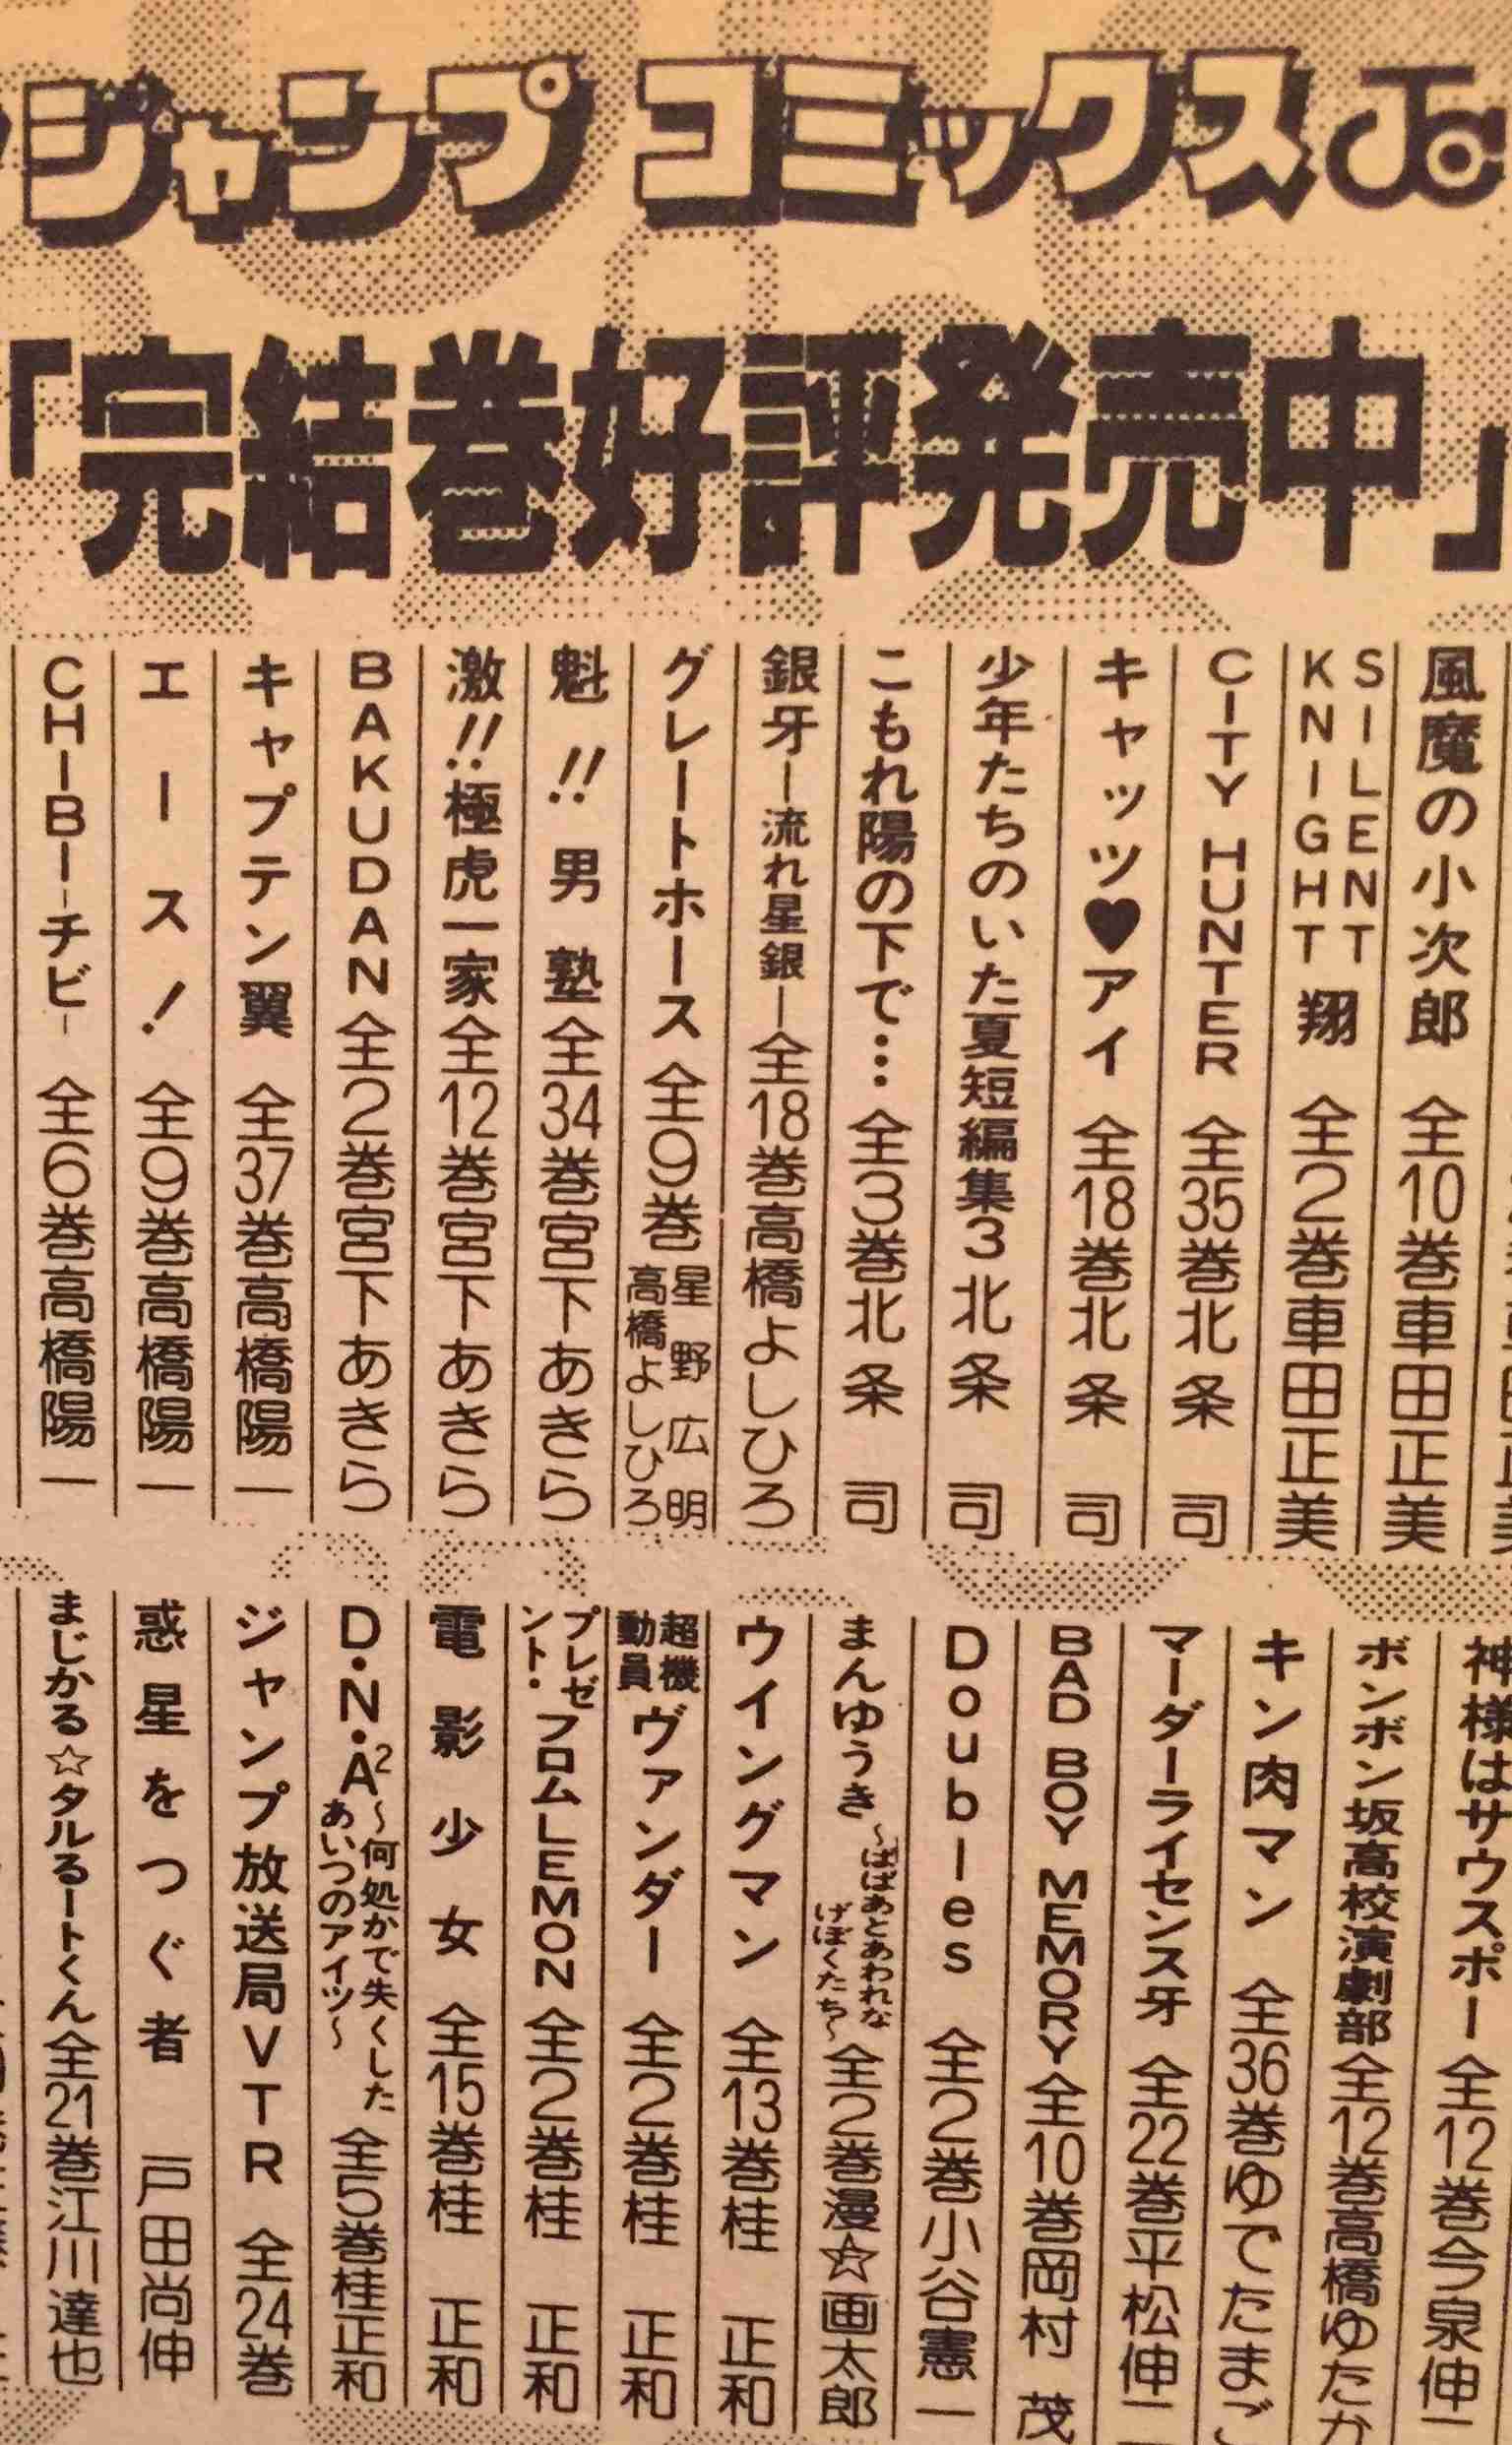 ジャンプ コミックス JC
「完結巻好評発売中」
風魔の小次郎 全10巻 車田正美
SILENT KNIGHT 翔 全2巻 車田正美
CITY HUNTER 全35巻 北条 司
キャッツ♥アイ 全18巻 北条 司
少年たちのいた夏 短編集3 北条 司
こもれ陽の下で… 全3巻 北条 司
銀牙ー流れ星銀ー 全18巻 高橋よしひろ
グレートホース 全9巻 星野広明 高橋よしひろ
魁!!男塾 全34巻 宮下あきら
激!!極虎一家 全12巻 宮下あきら
BAKUDAN 全2巻 宮下あきら
キャプテン翼 全37巻 高橋陽一
エース! 全9巻 高橋陽一
CHIBIーチビー 全6巻 高橋陽一
神様はサウスポー 全12巻 今泉伸二
ボンボン坂高校演劇部 全12巻 高橋ゆたか
キン肉マン 全36巻 ゆでたまご
マーダーライセンス牙 全22巻 平松伸二
BAD BOY MEMORY 全10巻 岡村 茂
Doubles 全2巻 小谷憲一
まんゆうき 〜ばばあとあわれなげぼくたち〜 全2巻 漫☆画太郎
ウイングマン 全13巻 桂 正和
超機動員ヴァンダー 全2巻 桂 正和
プレゼント・フロムLEMON 全2巻 桂 正和
電影少女 全15巻 桂 正和
D・N・A² 〜何処かで失くしたあいつのアイツ〜 全5巻 桂正和
ジャンプ放送局VTR 全24巻
惑星をつぐ者 戸田尚伸
まじかる☆タルるートくん 全21巻 江川達也